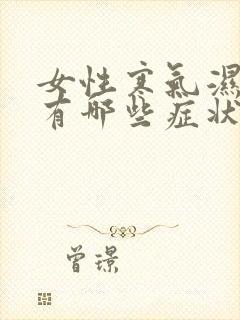 女性寒氣濕
有哪些症狀
曾璟